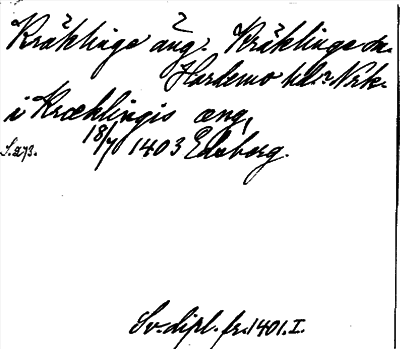 ?
Kräklinge äng. Kräklinge sn.
Hardemo hd. Nrk.
i Kræklingis æng,
S. 273. 18/7 1403 Edeborg.
Sv. dipl. fr. 1401. I.